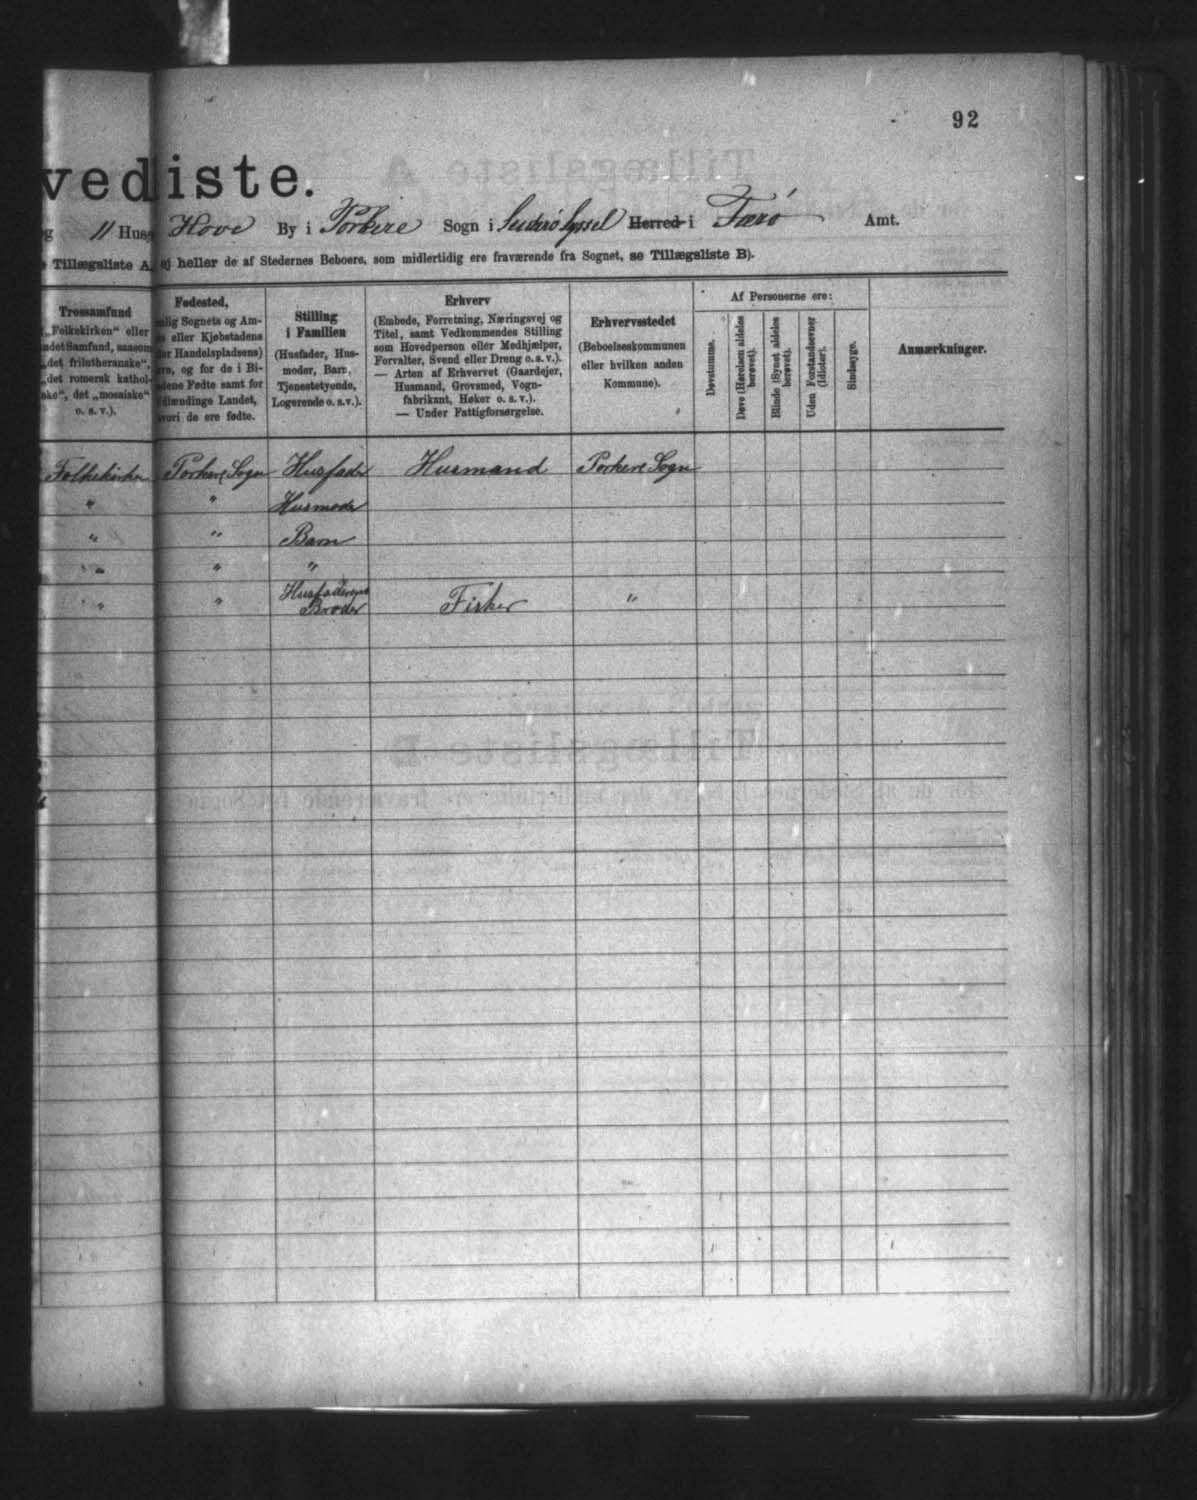 92
vediste.
11 Hus Hove By i Porkere Sogn i Suderø Syssel Herred i Færø Amt.
Tillægsliste A, ej heller de af Stedernes Beboere, som midlertidig ere fraværende fra Sognet, se Tillægsliste B).
Trossamfund
„Folkekirken“ eller
andet Samfund, saasom
„det frilutheranske“,
„det romersk kathol-
ske“, det „mosaiske“
o. s. v.).
Fødested,
nlig Sognets og Am-
s eller Kjøbstadens
ler Handelspladsens)
vn, og for de i Bi-
dene Fødte samt for
dlændinge Landet,
vori de ere fødte.
Stilling
i Familien
(Husfader, Hus-
moder, Barn,
Tjenestetyende,
Logerende o. s. v.).
Erhverv
(Embede, Forretning, Næringsvej og
Titel, samt Vedkommendes Stilling
som Hovedperson eller Medhjælper,
Forvalter, Svend eller Dreng o. s. v.).
— Arten af Erhvervet (Gaardejer,
Husmand, Grovsmed, Vogn-
fabrikant, Høker o. s. v.).
— Under Fattigforsørgelse.
Erhvervsstedet
(Beboelseskommunen
eller hvilken anden
Kommune).
Af Personerne ere:
Døvstumme.
Døve (Hørelsen aldeles
berøvet).
Blinde (Synet aldeles
berøvet).
Uden Forstandsevner
(Idioter).
Sindssyge.
Anmærkninger.
Folkekirken Porkere Sogn Husfader Husmand Porkere Sogn
" " Husmoder
" " Barn
" " "
" " Husfaderens
Broder Fisker "